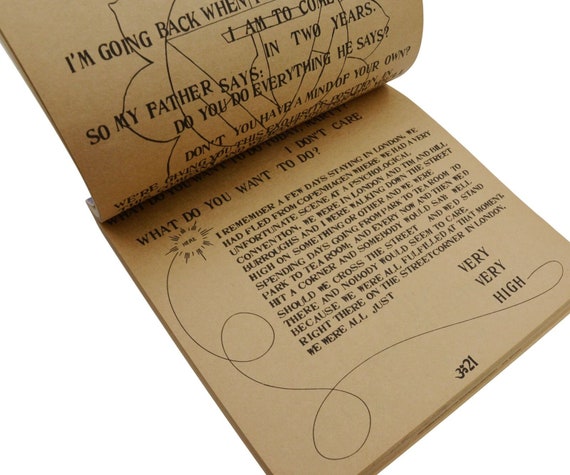 I'M GOING BACK WHEN
I AM TO COME
IN TWO YEARS.
SO MY FATHER SAYS:
DO YOU DO EVERYTHING HE SAYS?
DON'T YOU HAVE A MIND OF YOUR OWN?
WE'RE GIVING YOU THIS EXQUISITE POSITION
WHAT DO YOU WANT TO DO
I DON'T CARE.
WHAT DO YOU WANT TO DO?
HERE
I REMEMBER A FEW DAYS STAYING IN LONDON, WE
HAD FLED FROM COPENHAGEN WHERE WE HAD A VERY
UNFORTUNATE SCENE AT A PSYCHOLOGICAL
CONVENTION, WE WERE IN LONDON AND TIM AND BILL
BURROUGHS AND I WERE WALKING DOWN THE STREET
HIGH ON SOMETHING OR OTHER AND WE WERE
SPENDING DAYS GOING FROM PARK TO TEA ROOM TO
PARK TO TEA ROOM, AND EVERY NOW AND THEN WE'D
HIT A CORNER AND SOMEBODY WOULD SAY WELL
SHOULD WE CROSS THE STREET AND WE'D STAND
THERE AND NOBODY WOULD SEEM TO CARE,
BECAUSE WE WERE ALL FULFILLED AT THAT MOMENT,
RIGHT THERE ON THE STREETCORNER IN LONDON.
WE WERE ALL JUST
VERY
VERY
HIGH
21